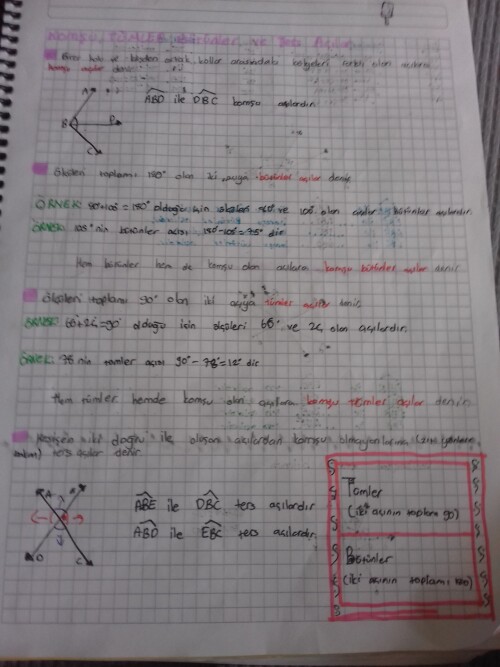 KOMŞU, TÜMLER, Bütünler ve Ters Açılar
Birer kolu ve köşeleri ortak, kollar arasındaki bölgeleri farklı olan açılara
komşu açılar denir.
A
B
D
C
ABD ile DBC komşu açılardır.
Ölçüleri toplamı 180° olan iki açıya bütünler açılar denir.
ÖRNEK: olduğu için ölçüleri ve 100° olan açılar bütünler açılardır.
ÖRNEK: 105°nin bütünler açısı 180°-105°=75° dir
Hem bütünler hem de komşu olan açılara komşu bütünler açılar denir
Ölçüleri toplamı 90° olan iki açıya tümler açılar denir.
ÖRNEK: =90° olduğu için ölçüleri ve olan açılardır.
ÖRNEK: nin tümler açısı dir
Hem tümler hemde komşu olan açılara komşu tümler açılar denir.
Kesişen iki doğru ile oluşan açılardan komşu olmayanlarına
ters açılar denir.
A
E
D
C
ABE ile DBC ters açılardır
ABD ile EBC ters açılardır
Tümler
(iki açının toplamı 90)
Bütünler
(iki açının toplamı 180)